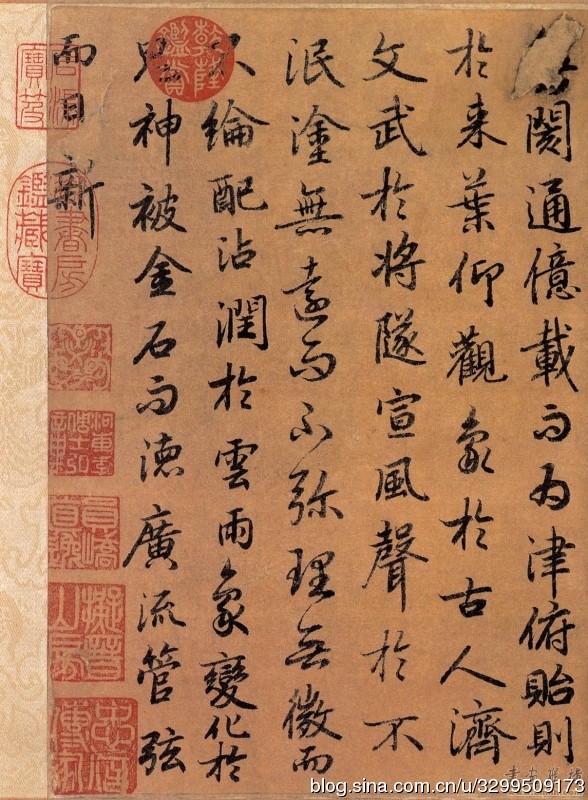 閡通億載而為津俯貽則
於来葉仰觀象於古人濟
文武於將隧宣風聲於不
泯塗無遠而不弥理無微而
不綸配沾潤於雲雨象變化於
鬼神被金石而德廣流管弦
而日新
乾隆鑑賞
石渠寶笈
御書房鑑藏寶
blog.sina.com.cn/u/3299509173